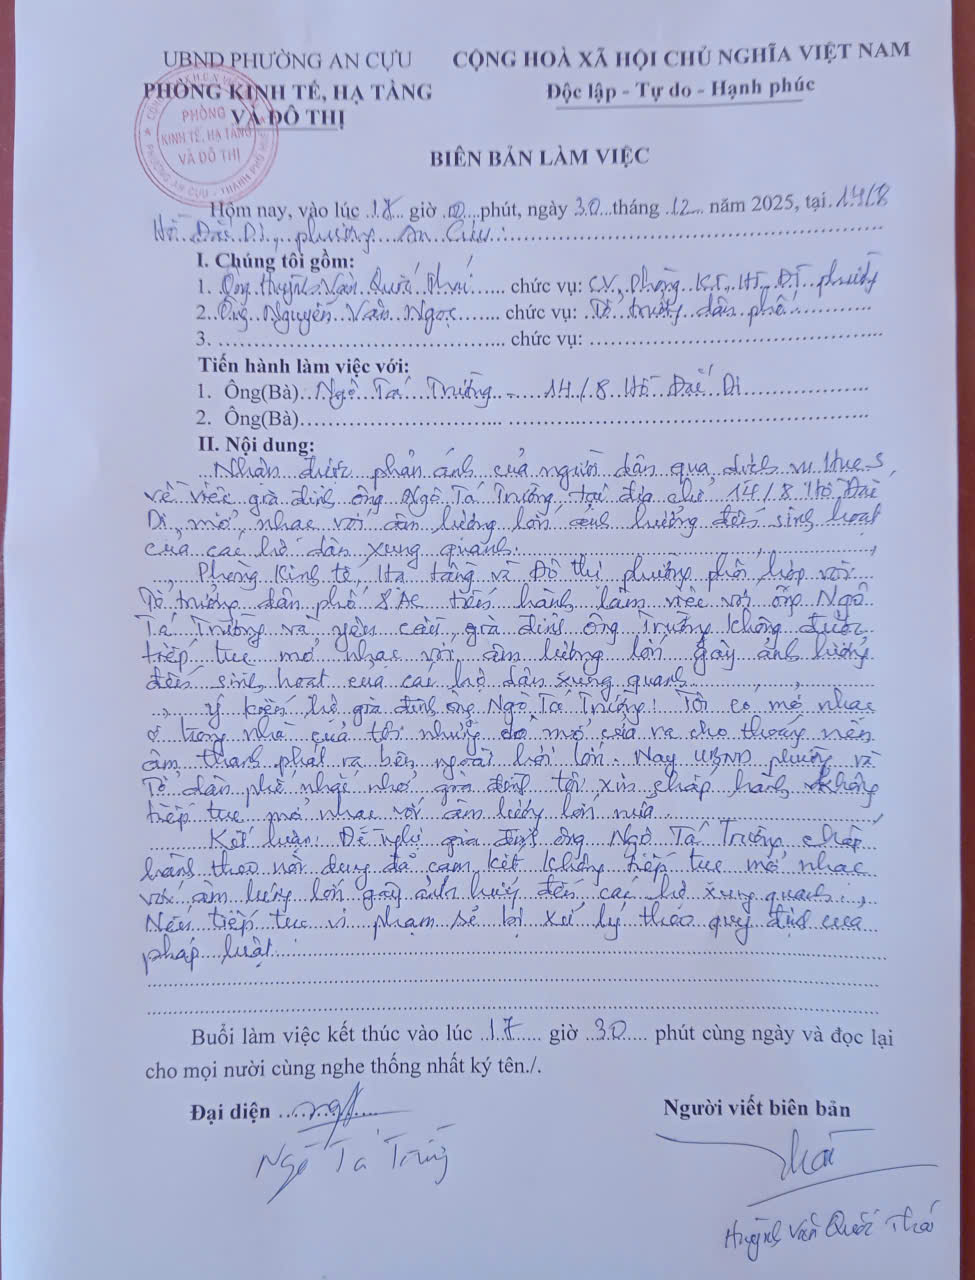 UBND PHƯỜNG AN CỰU
PHÒNG KINH TẾ, HẠ TẦNG
VÀ ĐÔ THỊ
CỘNG HOÀ XÃ HỘI CHỦ NGHĨA VIỆT NAM
Độc lập - Tự do - Hạnh phúc
PHÒNG
KINH TẾ, HẠ TẦNG
VÀ ĐÔ THỊ
BIÊN BẢN LÀM VIỆC
Hôm nay, vào lúc 17 giờ 00 phút, ngày 30 tháng 12 năm 2025, tại 14/8
Hồ Đắc Di, phường An Cựu.
I. Chúng tôi gồm:
1. Ông Huỳnh Văn Quốc Thái chức vụ: CV. Phòng KT, HT, ĐT phường
2. Ông Nguyễn Văn Ngọc chức vụ: Tổ trưởng dân phố
3. chức vụ:
Tiến hành làm việc với:
1. Ông(Bà) Ngô Tá Trường - 14/8 Hồ Đắc Di
2. Ông(Bà)
II. Nội dung:
Nhận được phản ánh của người dân qua dịch vụ Hue-S,
về việc gia đình ông Ngô Tá Trường, tại địa chỉ 14/8 Hồ Đắc
Di, mở nhạc với âm lượng lớn ảnh hưởng đến sinh hoạt
của các hộ dân xung quanh.
Phòng Kinh tế, Hạ tầng và Đô thị phường phối hợp với
Tổ trưởng dân phố 8AC tiến hành làm việc với ông Ngô
Tá Trường và yêu cầu gia đình ông Trường không được
tiếp tục mở nhạc với âm lượng lớn gây ảnh hưởng
đến sinh hoạt của các hộ dân xung quanh
Ý kiến hộ gia đình ông Ngô Tá Trường: Tôi có mở nhạc
ở trong nhà của tôi nhưng do mở cửa ra cho thoáng nên
âm thanh phát ra bên ngoài hơi lớn. Nay UBND phường và
Tổ dân phố nhắc nhở gia đình tôi xin chấp hành không
tiếp tục mở nhạc với âm lượng lớn nữa.
Kết luận: Đề nghị gia đình ông Ngô Tá Trường chấp
hành theo nội dung đã cam kết không tiếp tục mở nhạc
với âm lượng lớn gây ảnh hưởng đến các hộ xung quanh.
Nếu tiếp tục vi phạm sẽ bị xử lý theo quy định của
pháp luật.
Buổi làm việc kết thúc vào lúc 17 giờ 30 phút cùng ngày và đọc lại
cho mọi nười cùng nghe thống nhất ký tên./.
Đại diện
Người viết biên bản
Ngô Tá Trường
Thái
Huỳnh Văn Quốc Thái